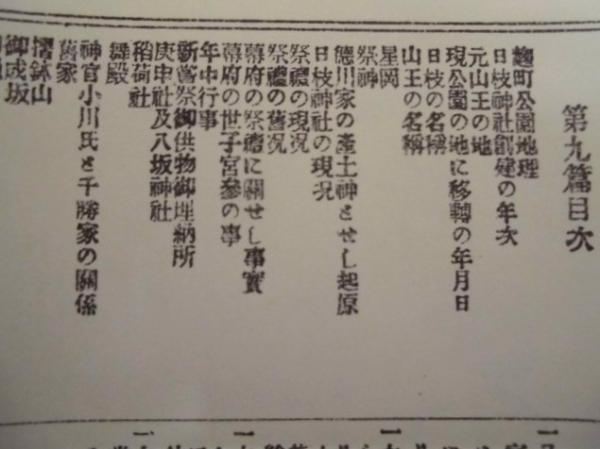 第九篇目次
麹町公園地理
日枝神社創建の年次
元山王の地
現公園の地に移轉の年月日
日枝の名稱
山王の名稱
星岡
祭神
德川家の產土神とせし起原
日枝神社の現況
祭禮の現況
祭禮の舊況
幕府の祭禮に關せし事實
幕府の世子宮參の事
年中行事
新嘗祭御供物御埋納所
庚申社及八坂神社
稻荷社
舞殿
神官小川氏と千勝家の關係
舊家
摺鉢山
御成坂